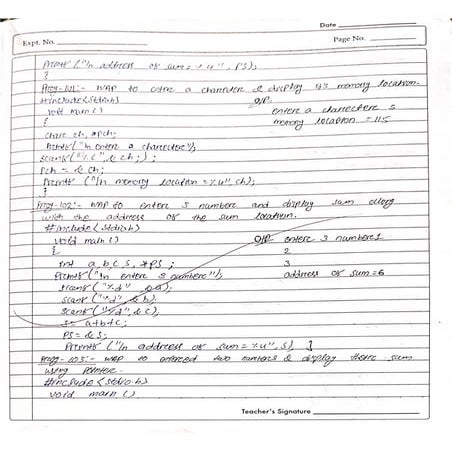 Date
Expt. No.
Page No.
Printf ("\n address of sum = %u", PS);
}
Prog-101:- WAP to enter a character & display it's memory location.
#include<stdio.h>
O/P
void main ()
enter a character s
{
memory location = 115
char ch, *pch;
Printf ("\n enter a character");
scanf ("%c", & ch;);
Pch = & ch;
Printf ("\n memory location = %u", ch);
}
Prog-102:- WAP to enter 3 number and display sum along
with the address of the sum location.
#include <stdio.h>
void main ()
O/P enter 3 number 1
{
2
int a, b, c, s, *PS ;
3
Printf ("\n enter 3 number");
address of sum = 6
scanf ("%d", & a);
scanf ("%d", & b);
scanf ("%d", & c);
s = a+b+c;
PS = & S;
Printf ("\n address of sum = %u", S) }
Prog-103:- WAP to two numbers & display their sum
using pointer.
#include <stdio.h>
void main ()
Teacher's Signature